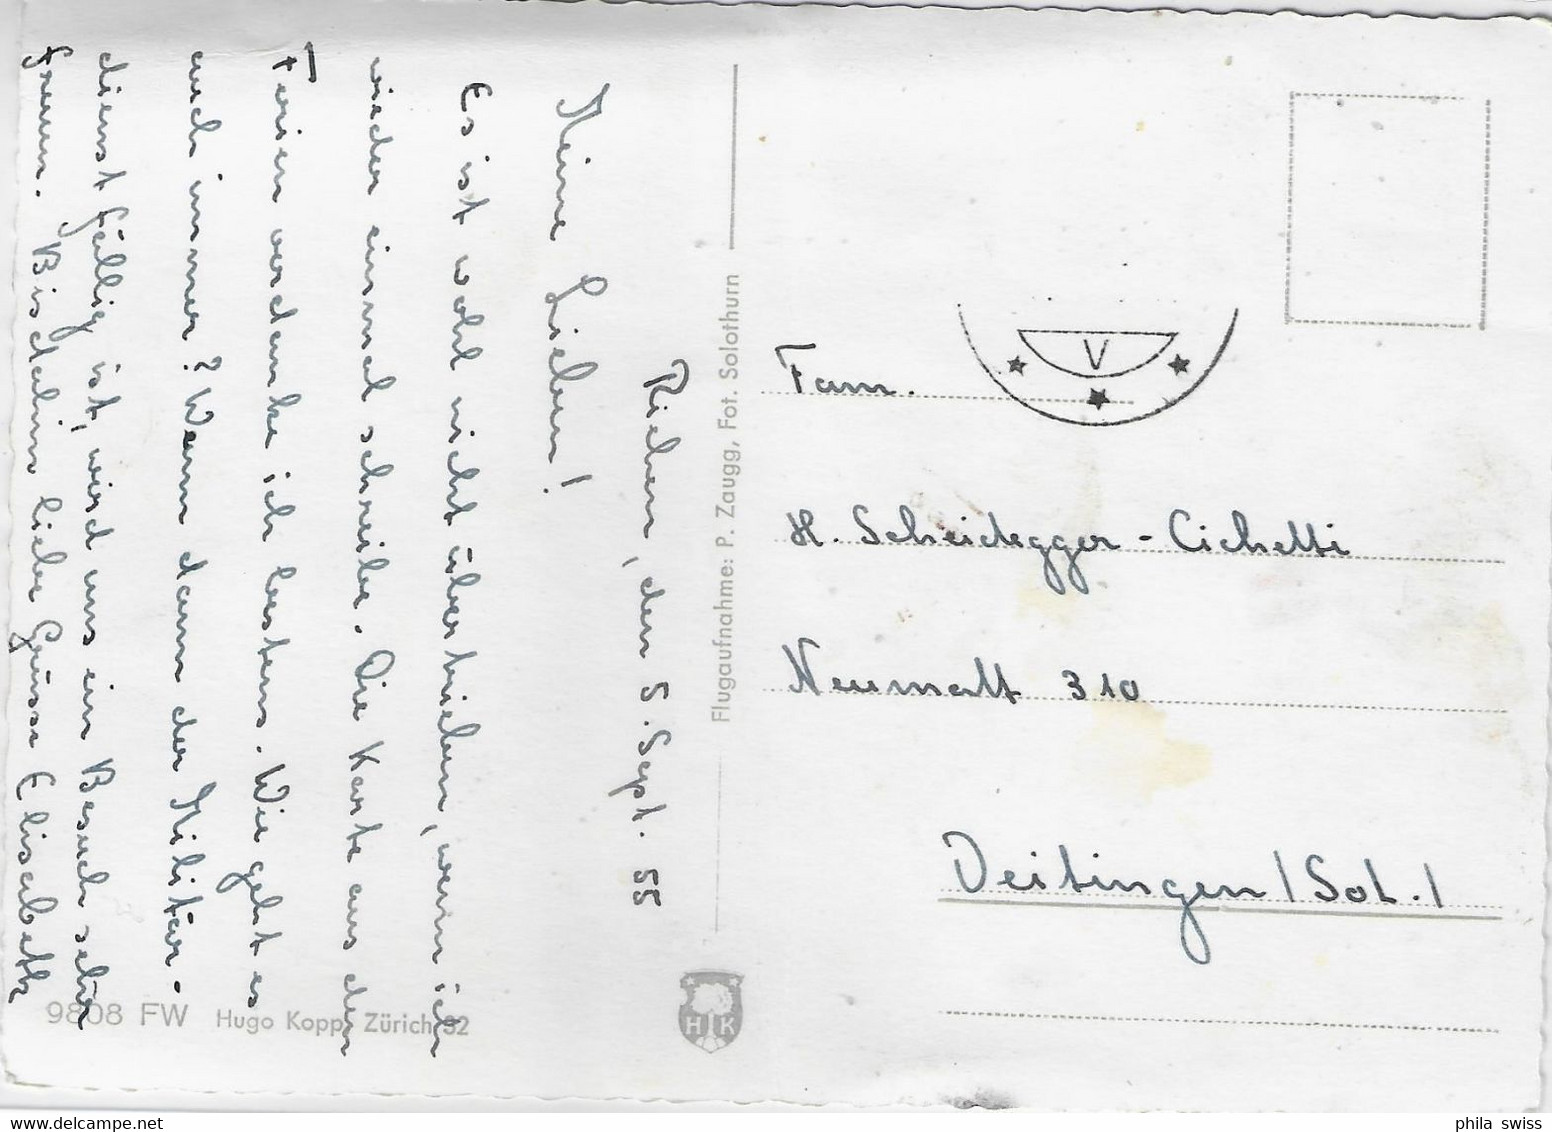 Riehen, den 5. Sept. 55
Meine Lieben!
Es ist wohl nicht übertrieben, wenn ich
wieder einmal schreibe. Die Karte aus den
Ferien verdanke ich bestens. Wie geht es
euch immer? Wenn dann der Militär-
dienst fällig ist, wird uns ein Besuch sehr
freuen. Bis dahin liebe Grüsse Elisabeth
Flugaufnahme: P. Zaugg, Fot. Solothurn
V
Fam.
H. Scheidegger-Cichetti
Neumatt 310
Deitingen/Sol./
9808 FW Hugo Kopp, Zürich 32
HK
phila swiss